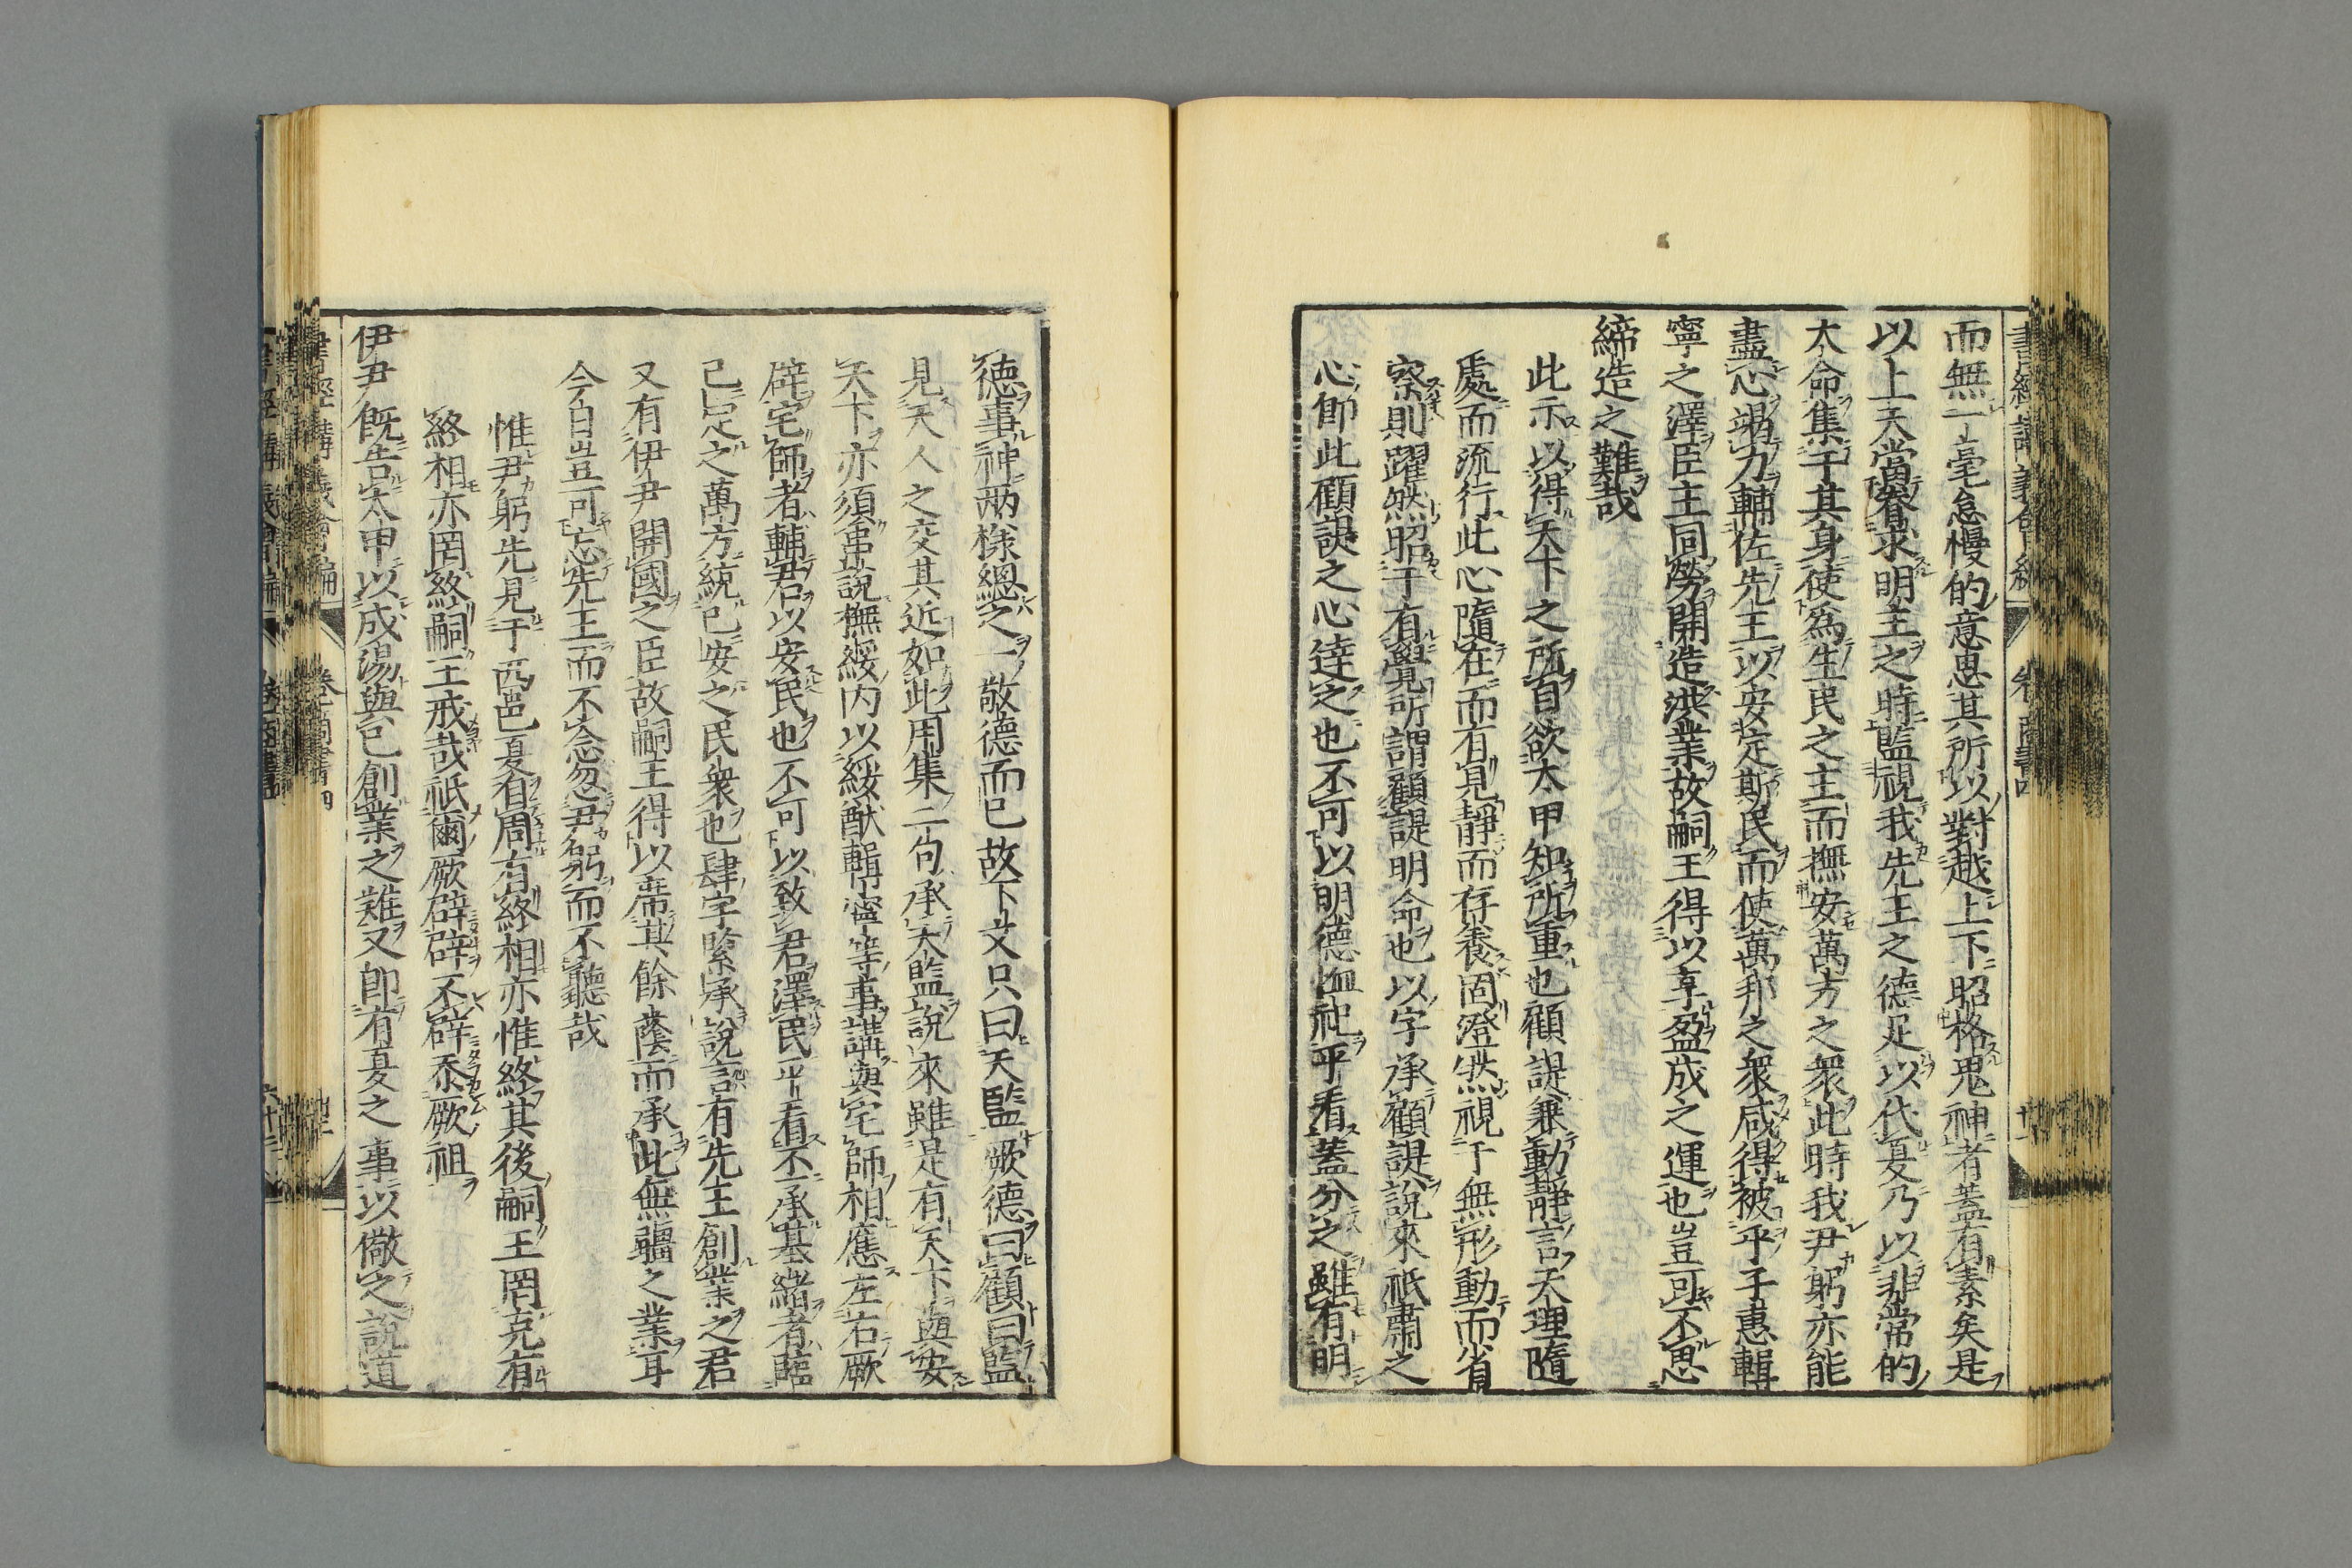 而無一毫怠慢的意思其所以對越上下昭格鬼神者蓋有素矣是
以上天當眷求明主之時監視我先王之德足以代夏乃以非常的
大命集于其身使爲生民之主而撫安萬方之衆此時我尹躬亦能
盡心竭力輔佐先王以安定斯民而使萬邦之衆咸得被乎子惠輯
寧之澤臣主同勞開造洪業故嗣王得以享盈成之運也豈可不思
締造之難哉
此示以得天下之所自欲太甲知所重也顧諟兼動靜言天理隨
處而流行此心隨在而有見靜而存養固澄然視于無形動而省
察則躍然昭于有覺所謂顧諟明命也以字承顧諟說來祇肅之
心即此顧諟之心達之也不可以明德恤祀平看蓋分之雖有明
德事神兩樣總之一敬德而已故下文只曰天監厥德曰顧曰監
見天人之交其近如此用集二句承天監說來雖是有天下與安
天下亦須串說撫綏內以綏猷輯寧等事講與宅師相應左右厥
辟宅師者輔君以安民也不可以致君澤民平看丕承基緒者臨
已定之萬方統已安之民衆也肆字緊承說言有先王創業之君
又有伊尹開國之臣故嗣王得以席其餘蔭而承此無疆之業耳
今日豈可忘先王而不念忽尹躬而不聽哉
惟尹躬先見于西邑夏自周有終相亦惟終其後嗣王罔克有
終相亦罔終嗣王戒哉祇爾厥辟辟不辟忝厥祖
伊尹旣告太甲以成湯與已創業之難又即有夏之事以儆之說道